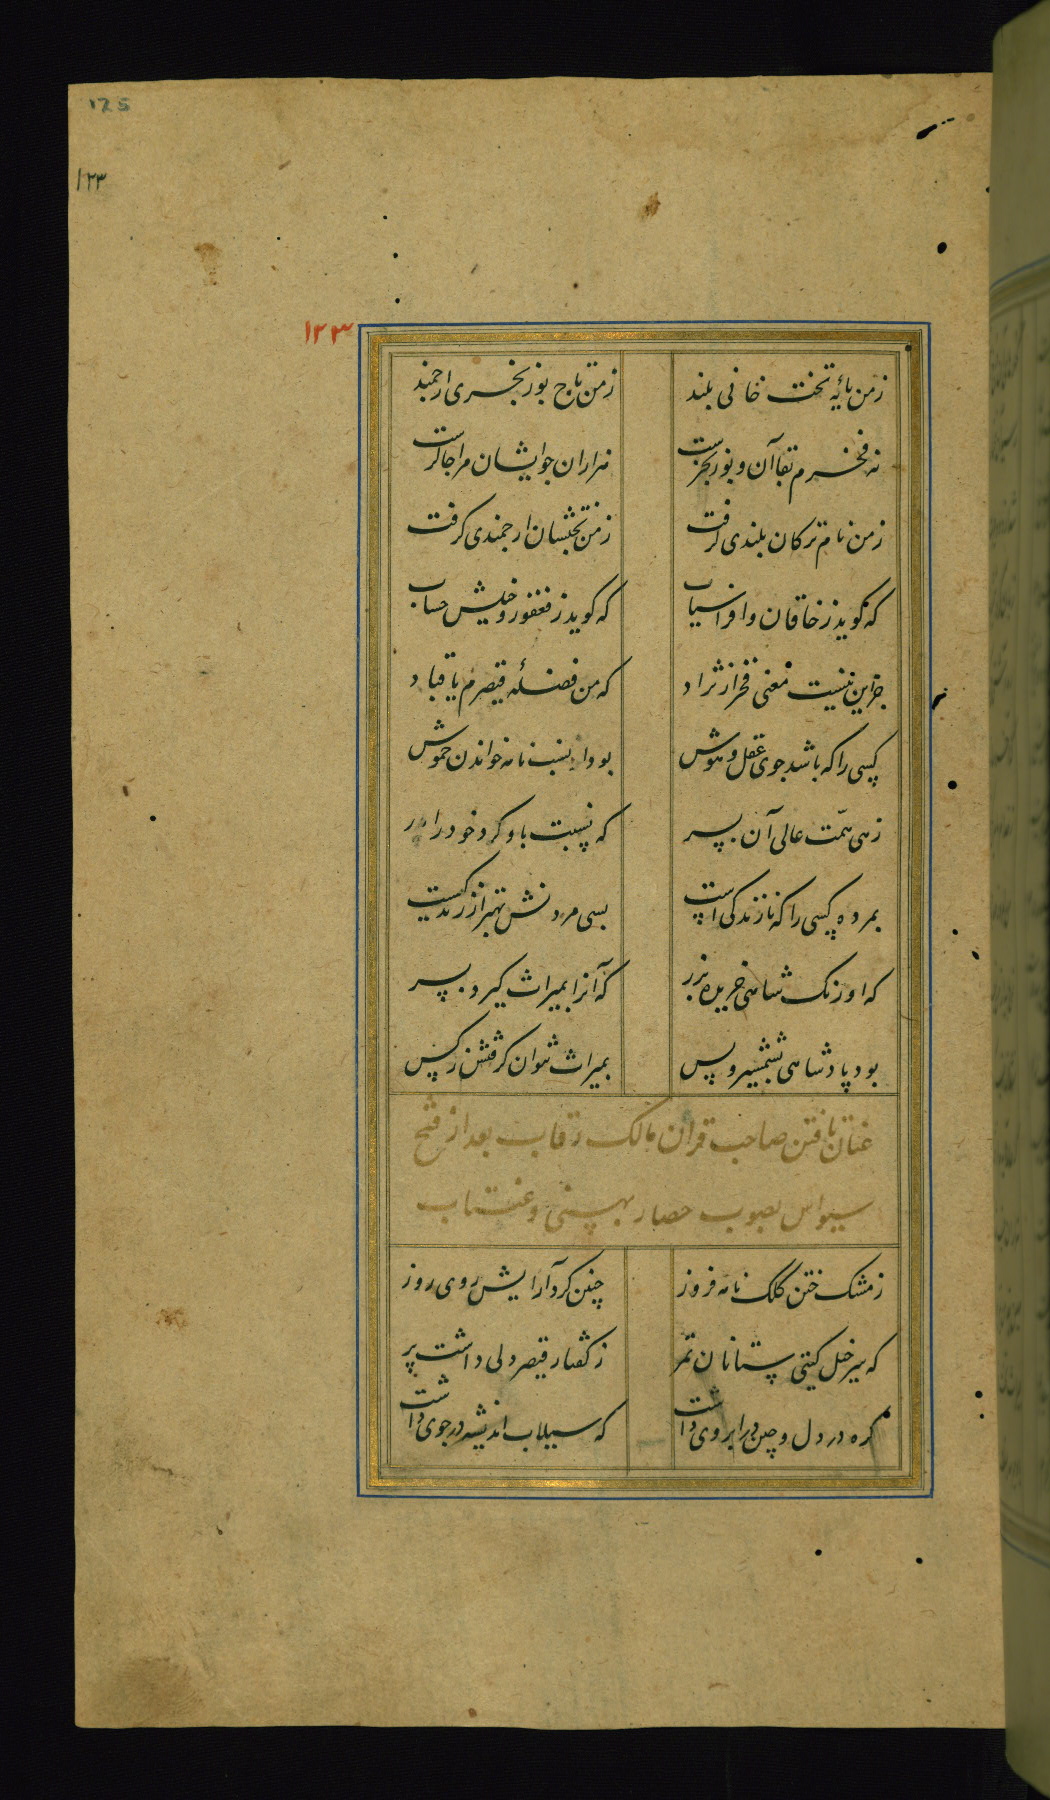 125
۱۲۳
۱۲۳
ز من پایهٔ تخت خانی بلند
ز من تاج بوزنجری ارجمند
نه فخرم بقاآن و بوزنجرست
هزاران جو ایشان مرا چاکرست
ز من نام ترکان بلندی گرفت
ز من بختشان ارجمندی گرفت
که کوید ز خاقان و افراسیاب
که کوید ز فغفور و خیلش حساب
جز این نیست معنی فخر از نژاد
که من فضلهٔ قیصرم یا قباد
کسی را که باشد جوی عقل و هوش
بود از نسب نامه خواندن خموش
زهی همّت عالی آن پسر
که نسبت باو کرد خود را پدر
بمرده کسی را که نازندکی است
بسی مردنش بهتر از زندکیست
که اورنک شاهی خریده بزر
که آنرا بمیراث کیرد پسر
بود پادشاهی بشمشیر و بس
بمیراث نتوان کرفتش ز کس
عنان تافتن صاحب قران مالک رقاب بعد از فتح
سیواس بصوب حصار بهسنی و عنتاب
ز مشک ختن کلک نامه فروز
چنین کرد آرایش روی روز
که سرخیل کیتی ستانان تمر
ز گفتار قیصر دلی داشت پر
کره در دل و چین در ابروی داشت
که سیلاب اندیشه در جوی داشت